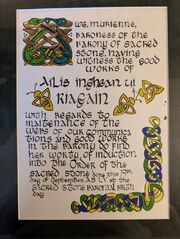 we, murienne,
baroness of the
barony of sacred
stone, having
witness the good
works of
Ailis inghean ui
Riagain
with regards to
maitenance of the
webs of our communica
tions and good works
in the barony do find
her worty of induction
into the Order of the
sacred stone done this 19th
day of September AS LV at the
Sacred Stone Baronial Birth
day